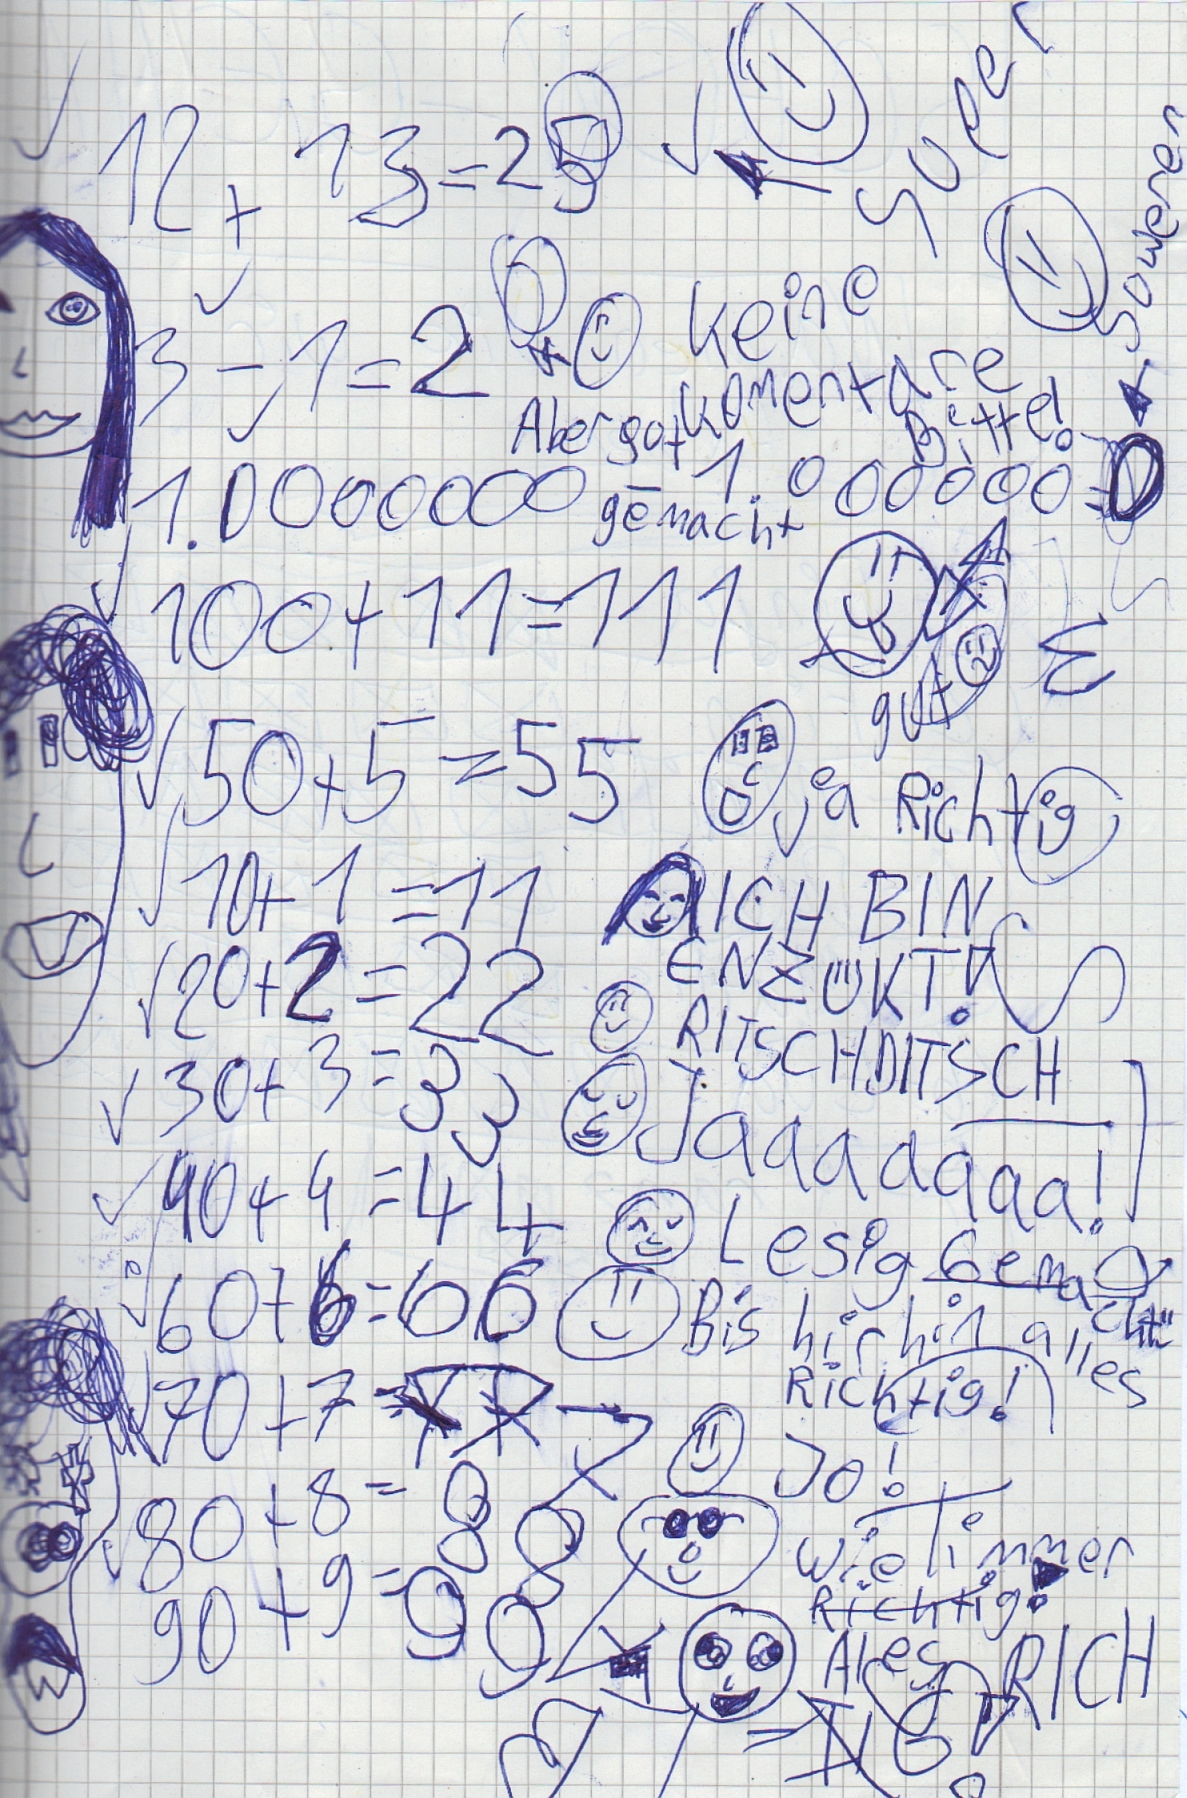 12 + 13 = 25 super
3 - 1 = 2 keine
Komentare
Bitte!
Aber gut
gemacht
soweren
1.0000000 - 1.0000000 = 0
100 + 11 = 111
gut
50 + 5 = 55 ja Richtig
10 + 1 = 11 ICH BIN
ENZÜKT!
20 + 2 = 22 RITSCHDITSCH
30 + 3 = 33 Jaaaaaaa!
40 + 4 = 44 Lesig Gemacht
60 + 6 = 66 Bis hirhin alles
Richtig!
70 + 7 = 77 Jo!
80 + 8 = 88 wie immer
Richtig!
90 + 9 = 99 Ales RICH
TIG!